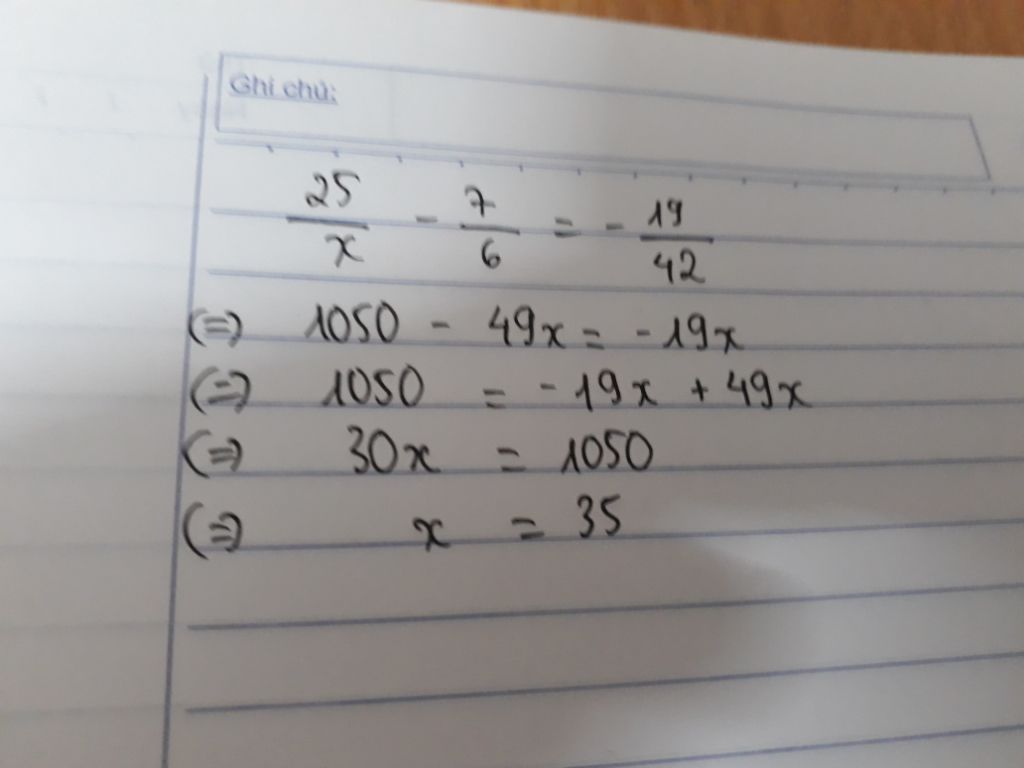 Ghi chú:
25/x - 7/6 = - 19/42
(=) 1050 - 49x = -19x
(=) 1050 = -19x + 49x
(=) 30x = 1050
(=) x = 35